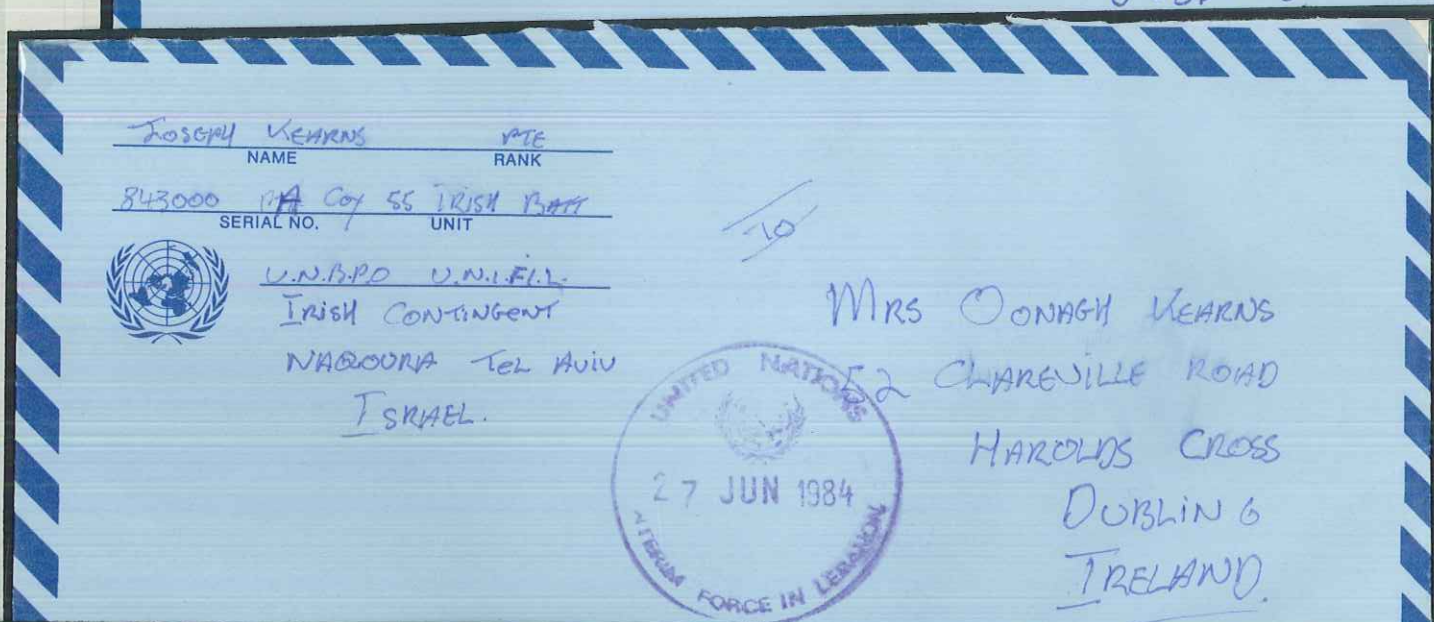 JOSEPH KEARNS PTE
NAME RANK
843000 A Coy 55 IRISH BATT
SERIAL NO. UNIT
U.N.B.P.O U.N.I.F.I.L.
IRISH CONTINGENT
NAQOURA TEL AVIV
ISRAEL.
TO
MRS OONAGH KEARNS
52 CLAREVILLE ROAD
HAROLDS CROSS
DUBLIN 6
IRELAND.
UNITED NATIONS
27 JUN 1984
INTERIM FORCE IN LEBANON